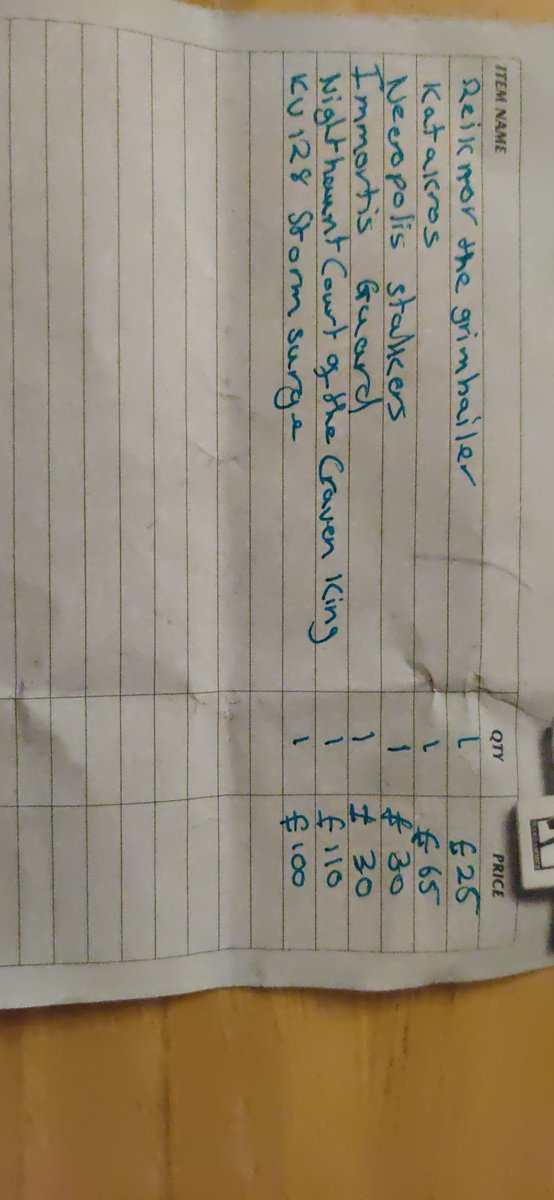 ITEM NAME QTY PRICE
Reiknor the grimhailer 1 £25
Katakros 1 £65
Necropolis stalkers 1 £30
Immortis Guard 1 £30
Nighthaunt Court of the Craven King 1 £110
KV128 Storm surge 1 £100